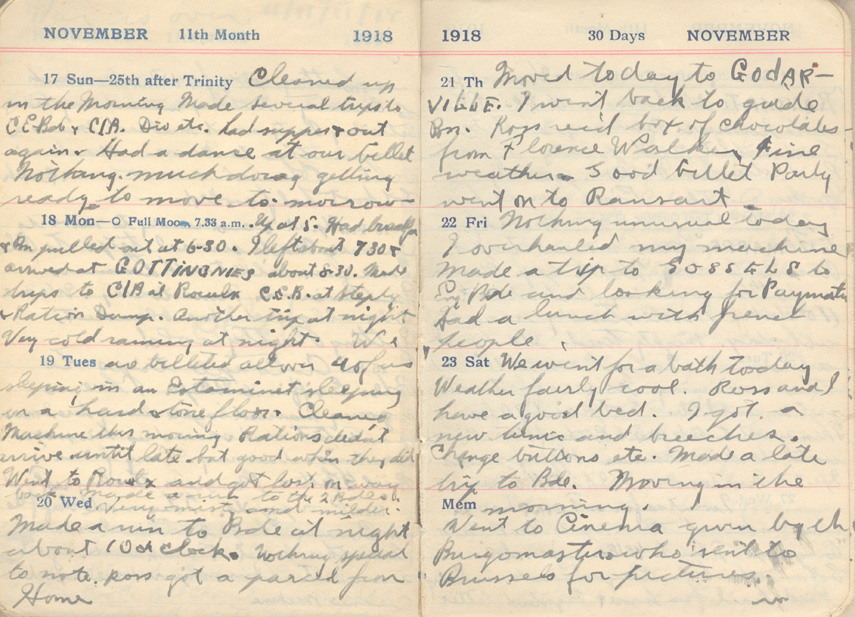 NOVEMBER 11th Month 1918
17 Sun—25th after Trinity Cleaned up
in the Morning Made several trips to
C.E.Bde & C/A. Div etc. had supper & out
again. Had a dance at our billet
Nothing much doing getting
ready to move to-morrow
18 Mon—O Full Moon 7.33 a.m. Up at 5. Had
& Bn pulled out at 6-30. I left about 730 &
arrived at GOTTINGNIES about 8-30. Made
trips to C/A at Roeulx C.E.B. at
& Ration Dump. Another trip at night
Very cold raining at night. We
19 Tues are billeted all over 40 of us
sleeping in an Estaminet sleeping
on a hard stone floor. Cleaned
Machine this morning Rations didn't
arrive until late but good when they did
Went to Roeulx and got lost on way
back Made a run to the 2 Bdes
20 Wed very misty and milder.
Made a run to Bde at night
about 10 o'clock. Nothing special
to note. Ross got a parcel from
Home
1918 30 Days NOVEMBER
21 Th Moved today to GODAR-
VILLE. I went back to guide
Bn. Ross rec'd box of chocolates
from Florence Walker Fine
weather. Good billet Party
went on to Ransart
22 Fri Nothing unusual today
I overhauled my machine
Made a trip to GOSSELS to
Bde and looking for Paymaster
Had a lunch with french
people.
23 Sat We went for a bath today
Weather fairly cool. Ross and I
have a good bed. I got a
new tunic and breeches.
Change buttons etc. Made a late
trip to Bde. Moving in the
Mem morning.
Went to Cinema given by the
Burgomaster who sent to
Brussels for pictures.